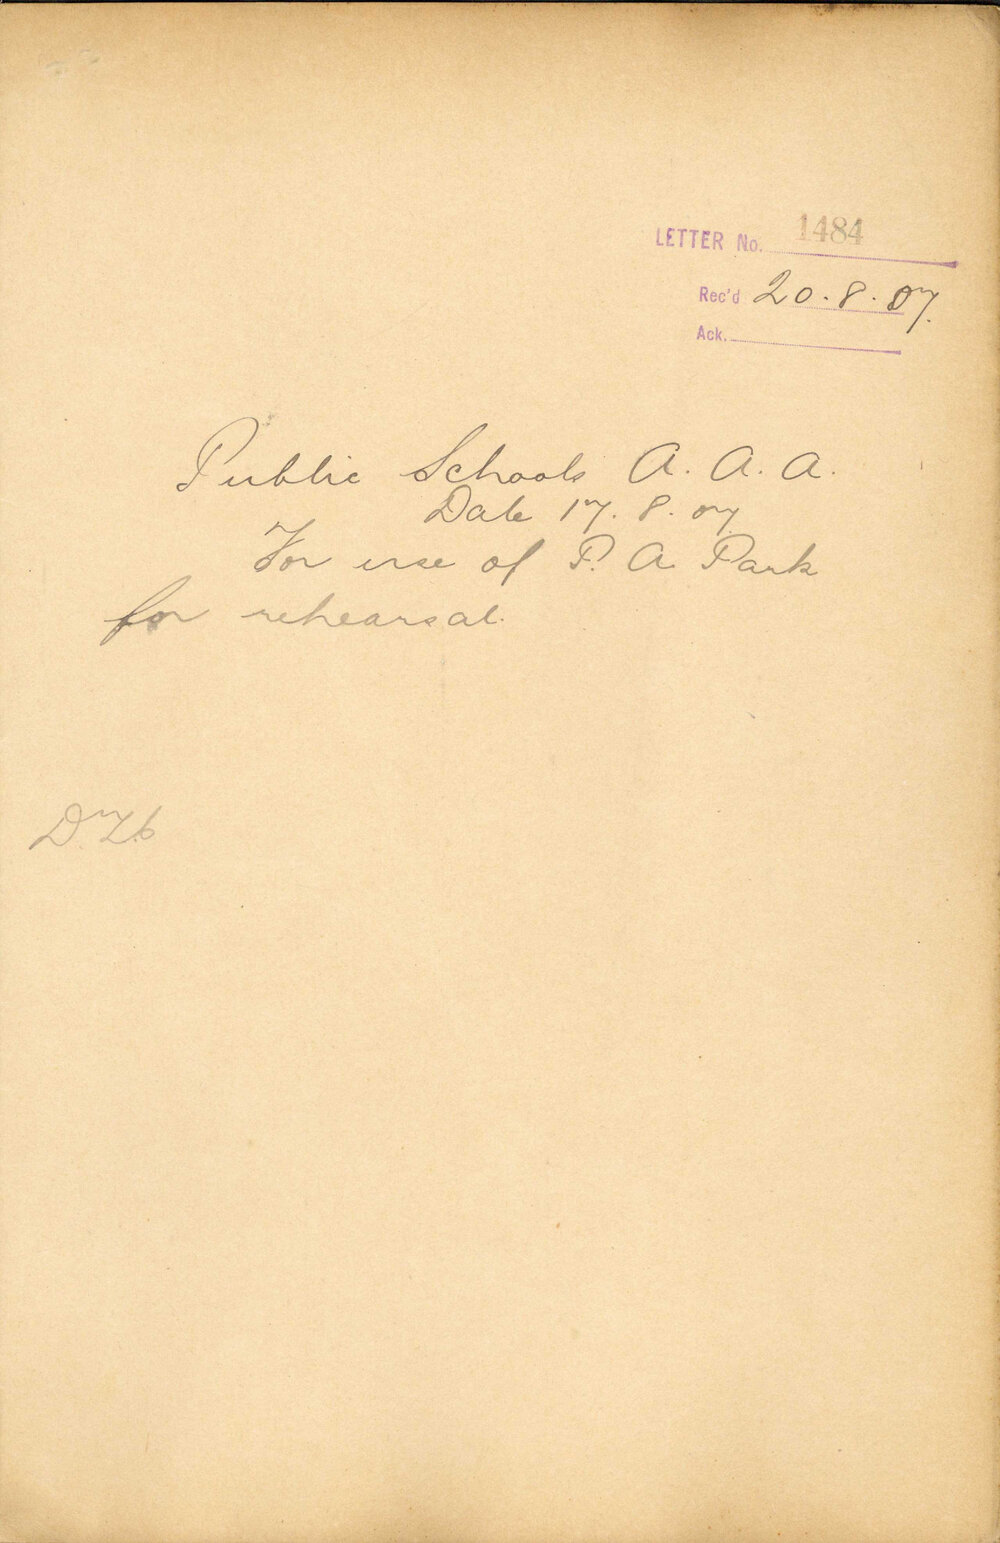 LETTER No. 1484
Rec'd 20.8.07.
Ack.
Public Schools A. A. A.
Date 17.8.07
For use of P. A. Park
for rehearsal.